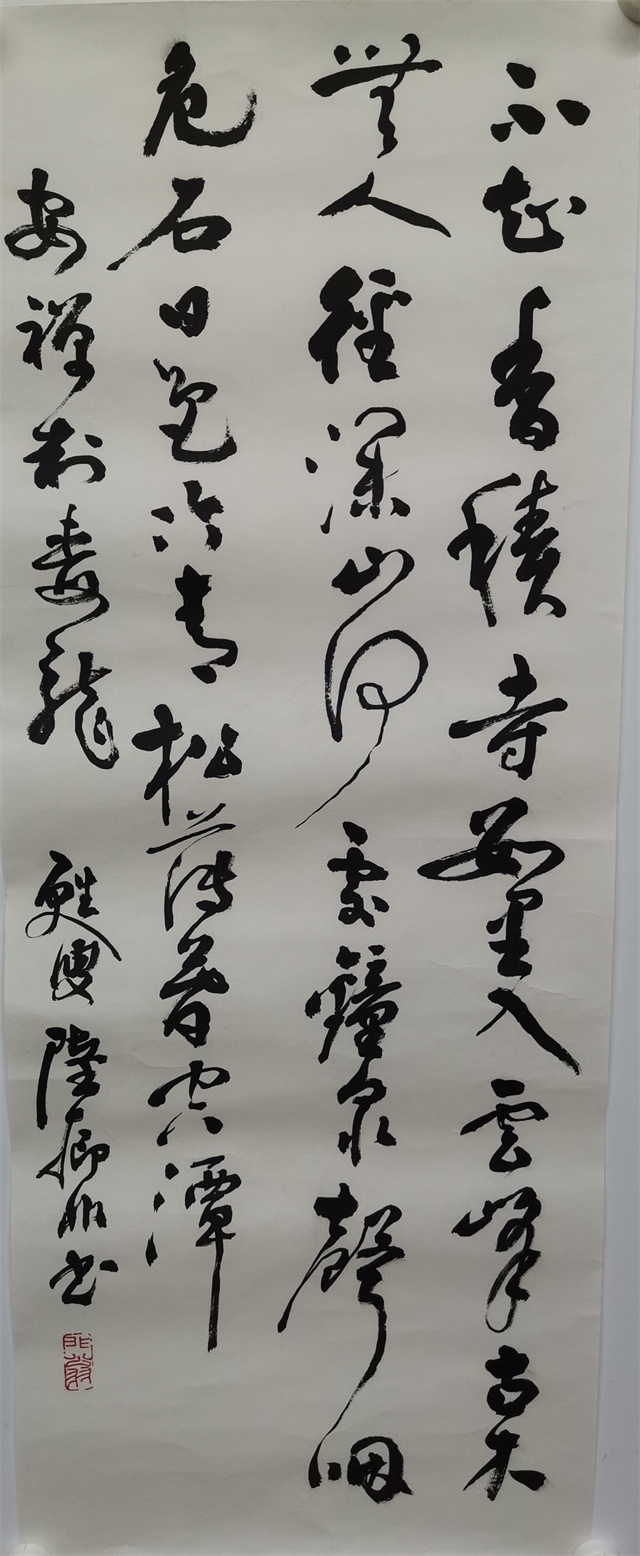 不知香積寺數里入雲峰古木
無人徑深山何處鐘泉聲咽
危石日色冷青松薄暮空潭
安禪制毒龍 叟陸書